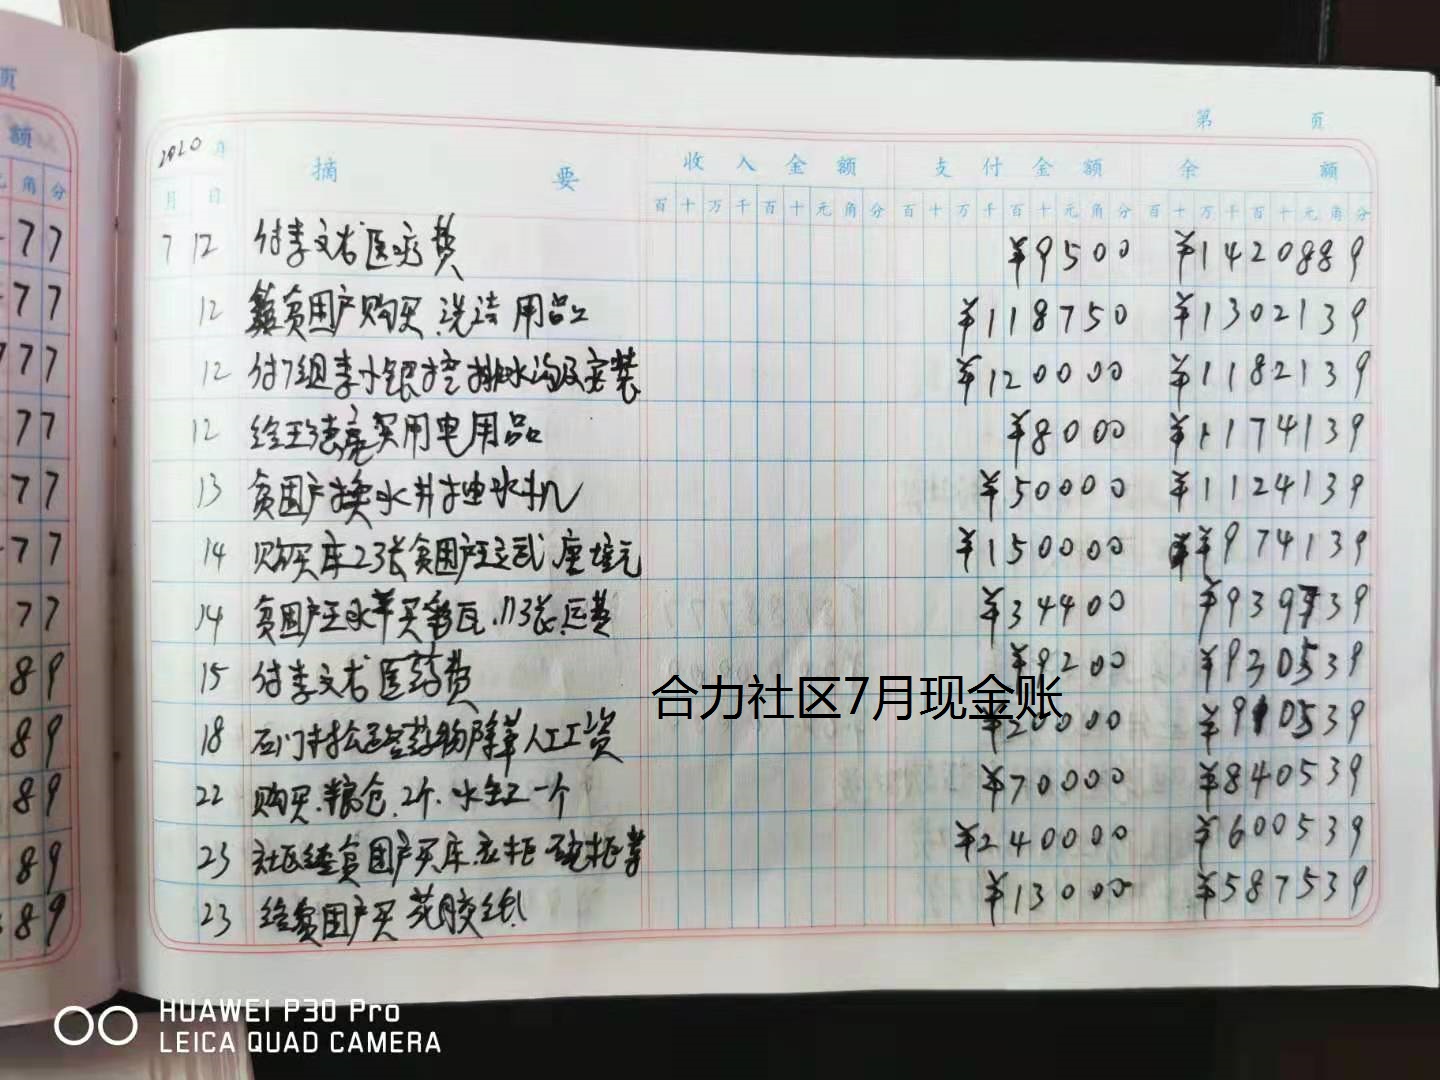 第 页
2020年 摘 要 收 入 金 额 支 付 金 额 余 额
月 日 百 十 万 千 百 十 元 角 分 百 十 万 千 百 十 元 角 分 百 十 万 千 百 十 元 角 分
7 12 付李文书医疗费 ¥9500 ¥1420889
12 贫困户购买洗洁用品 ¥118750 ¥1302139
12 付7组李小银挖排水沟及安装 ¥120000 ¥1182139
12 给王德 买用电用品 ¥8000 ¥1174139
13 贫困户换水井抽水机 ¥50000 ¥1124139
14 购买床23张贫困户王 ¥150000 ¥974139
14 贫困户王水平买彩瓦.113张.运费 ¥34400 ¥939739
15 付李文书医药费 ¥9200 ¥930539
合力社区7月现金账
18 石门 药物除草人工工资 ¥20000 ¥910539
22 购买.粮仓.2个.水缸一个 ¥70000 ¥840539
23 社区给贫困户买床.衣柜 碗柜等 ¥240000 ¥600539
23 给贫困户买 胶纸 ¥13000 ¥587539
页
额
元 角 分
77
77
777
77
77
77
77
89
89
89
89
89
HUAWEI P30 Pro
LEICA QUAD CAMERA